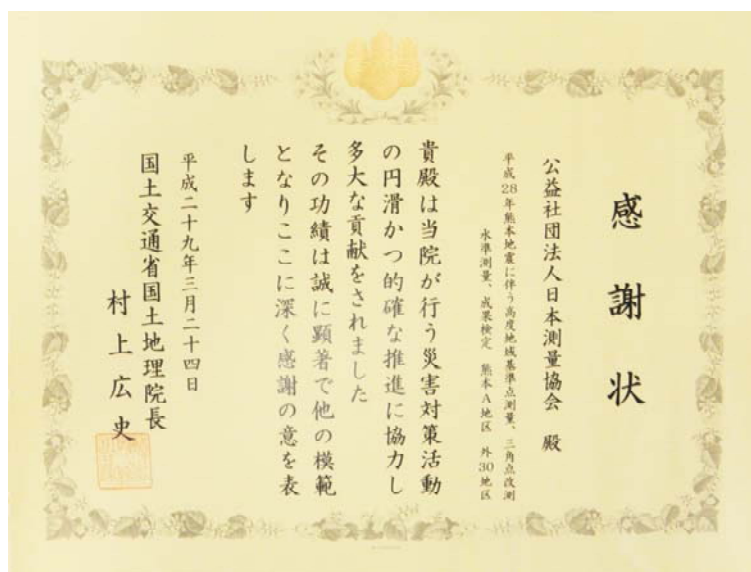 感謝状
公益社団法人日本測量協会 殿
平成28年熊本地震に伴う高度地域基準点測量、三角点改測
水準測量、成果検定 熊本A地区 外30地区
貴殿は当院が行う災害対策活動
の円滑かつ的確な推進に協力し
多大な貢献をされました
その功績は誠に顕著で他の模範
となりここに深く感謝の意を表
します
平成二十九年三月二十四日
国土交通省国土地理院長
村上広史